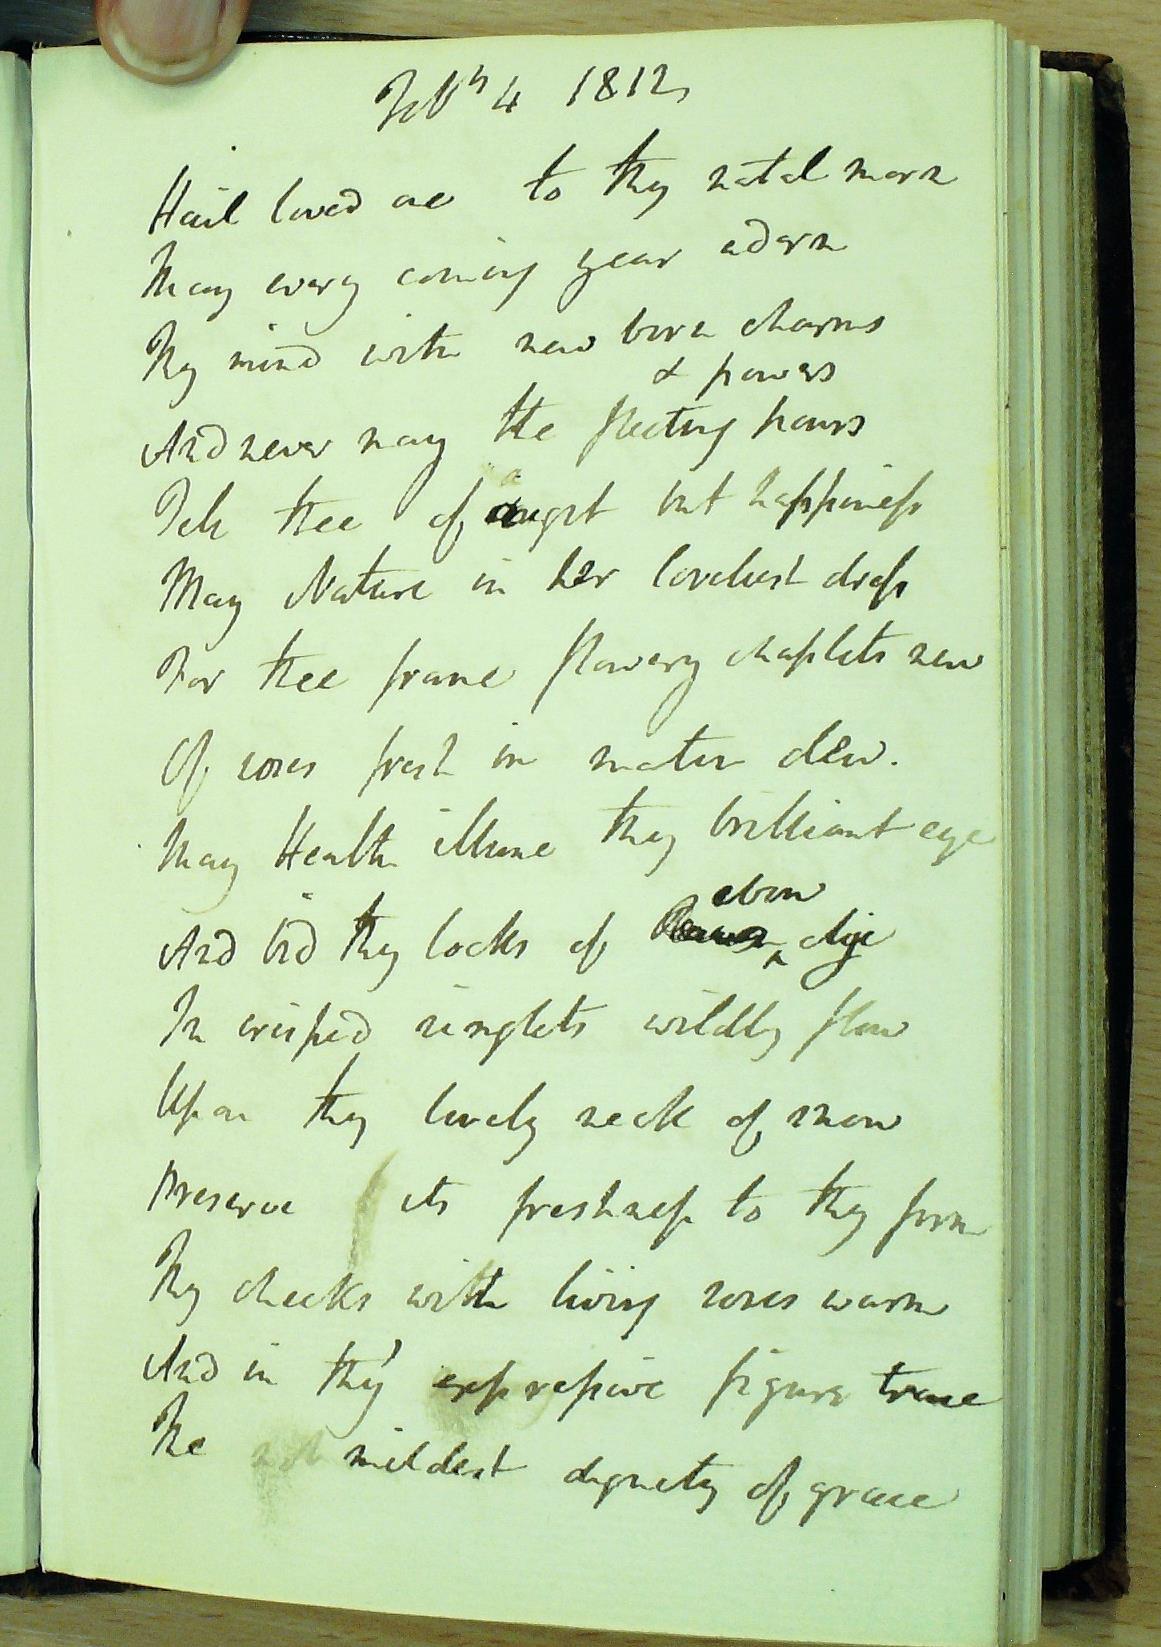 Feb 4 1812
Hail loved one to thy natal morn
May every coming year adorn
Thy mind with new born charms
& powers
And never may the fleeting hours
Tell thee of aught but happiness
May Nature in her loveliest dress
For thee frame flowery chaplets new
Of roses fresh in matin dew.
May Health illume thy brilliant eye
ebon
And bid thy locks of dye
In crisped ringlets wildly flow
Upon thy lovely neck of snow
Preserve its freshness to thy form
Thy cheeks with living roses warm
And in thy expressive figure trace
The mildest dignity of grace